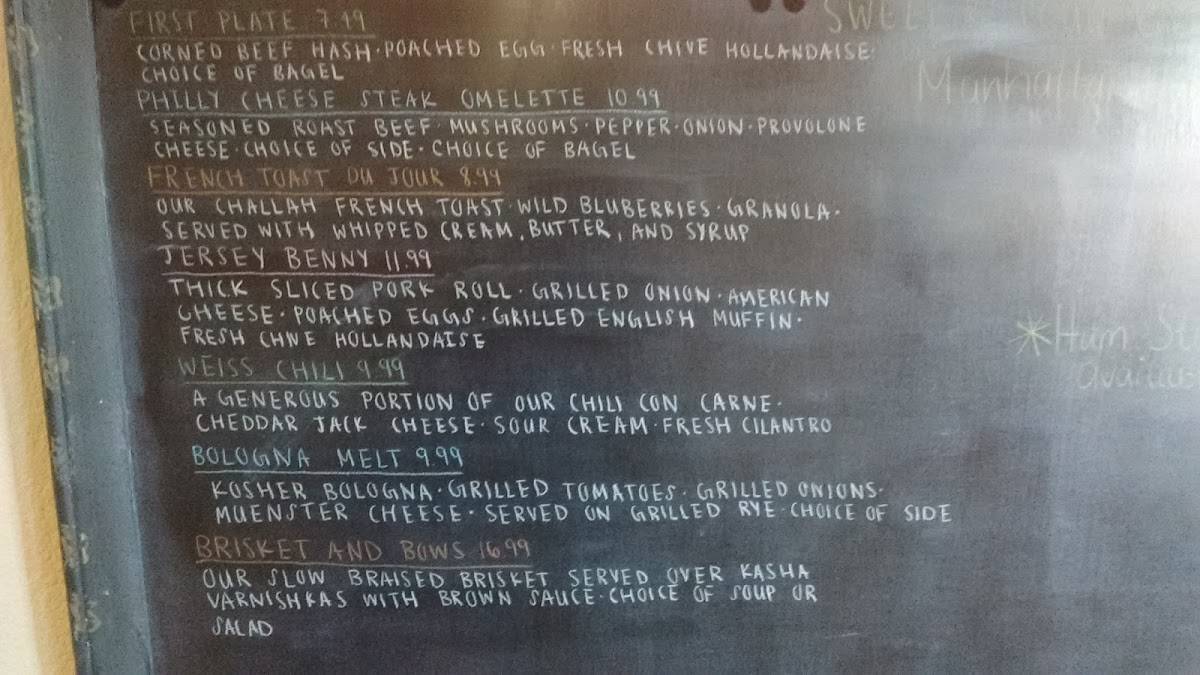 FIRST PLATE 7.99
CORNED BEEF HASH · POACHED EGG · FRESH CHIVE HOLLANDAISE ·
CHOICE OF BAGEL
PHILLY CHEESE STEAK OMELETTE 10.99
SEASONED ROAST BEEF · MUSHROOMS · PEPPER · ONION · PROVOLONE
CHEESE · CHOICE OF SIDE · CHOICE OF BAGEL
FRENCH TOAST DU JOUR 8.99
OUR CHALLAH FRENCH TOAST · WILD BLUBERRIES · GRANOLA ·
SERVED WITH WHIPPED CREAM, BUTTER, AND SYRUP
JERSEY BENNY 11.99
THICK SLICED PORK ROLL · GRILLED ONION · AMERICAN
CHEESE · POACHED EGGS · GRILLED ENGLISH MUFFIN ·
FRESH CHIVE HOLLANDAISE
WEISS CHILI 9.99
A GENEROUS PORTION OF OUR CHILI CON CARNE ·
CHEDDAR JACK CHEESE · SOUR CREAM · FRESH CILANTRO
BOLOGNA MELT 9.99
KOSHER BOLOGNA · GRILLED TOMATOES · GRILLED ONIONS ·
MUENSTER CHEESE · SERVED ON GRILLED RYE · CHOICE OF SIDE
BRISKET AND BOWS 16.99
OUR SLOW BRAISED BRISKET SERVED OVER KASHA
VARNISHKAS WITH BROWN SAUCE · CHOICE OF SOUP OR
SALAD